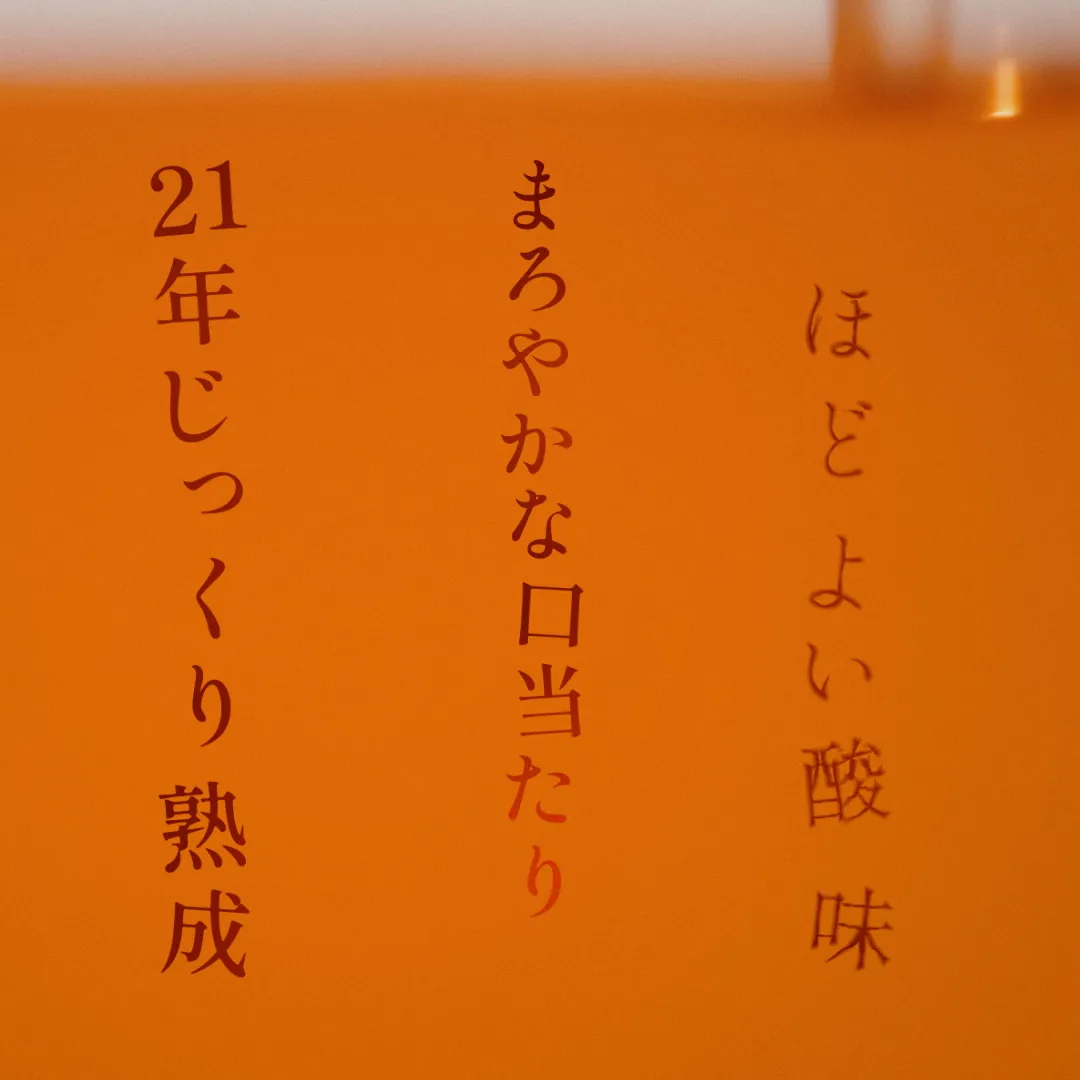 ほどよい酸味
まろやかな口当たり
21年じっくり熟成